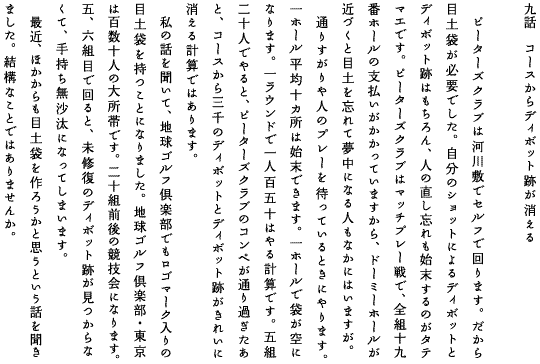 九話　コースからディボット跡が消える
　ピーターズクラブは河川敷でセルフで回ります。だから
目土袋が必要でした。自分のショットによるディボットと
ディボット跡はもちろん、人の直し忘れも始末するのがタテ
マエです。ピーターズクラブはマッチプレー戦で、全組十九
番ホールの支払いがかかっていますから、ドーミーホールが
近づくと目土を忘れて夢中になる人もなかにはいますが。
　通りすがりや人のプレーを待っているときにやります。
一ホール平均十カ所は始末できます。一ホールで袋が空に
なります。一ラウンドで一人百五十はやる計算です。五組
二十人でやると、ピーターズクラブのコンペが通り過ぎたあ
と、コースから三千のディボットとディボット跡がきれいに
消える計算ではあります。
　私の話を聞いて、地球ゴルフ倶楽部でもロゴマーク入りの
目土袋を持つことになりました。地球ゴルフ倶楽部・東京
は百数十人の大所帯です。二十組前後の競技会になります。
五、六組目で回ると、未修復のディボット跡が見つからな
くて、手持ち無沙汰になってしまいます。
　最近、ほかからも目土袋を作ろうかと思うという話を聞き
ました。結構なことではありませんか。